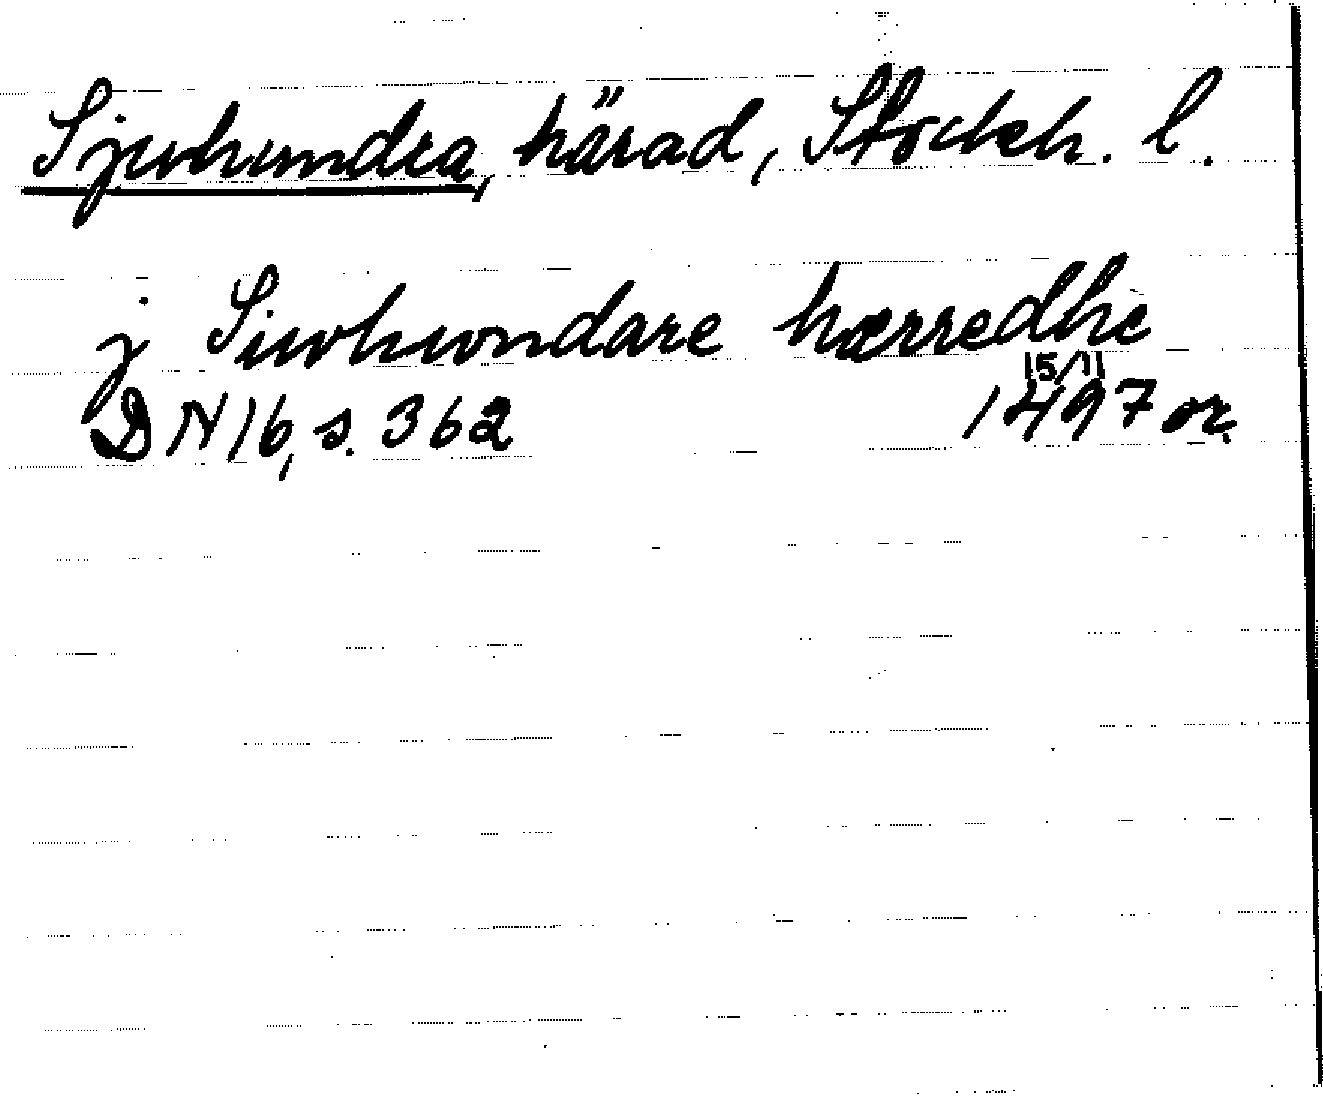 Sjuhundra, härad, Stockh. l.
j Siwhwndare hærredhe
DN 16, s. 362 15/11 1497 or.